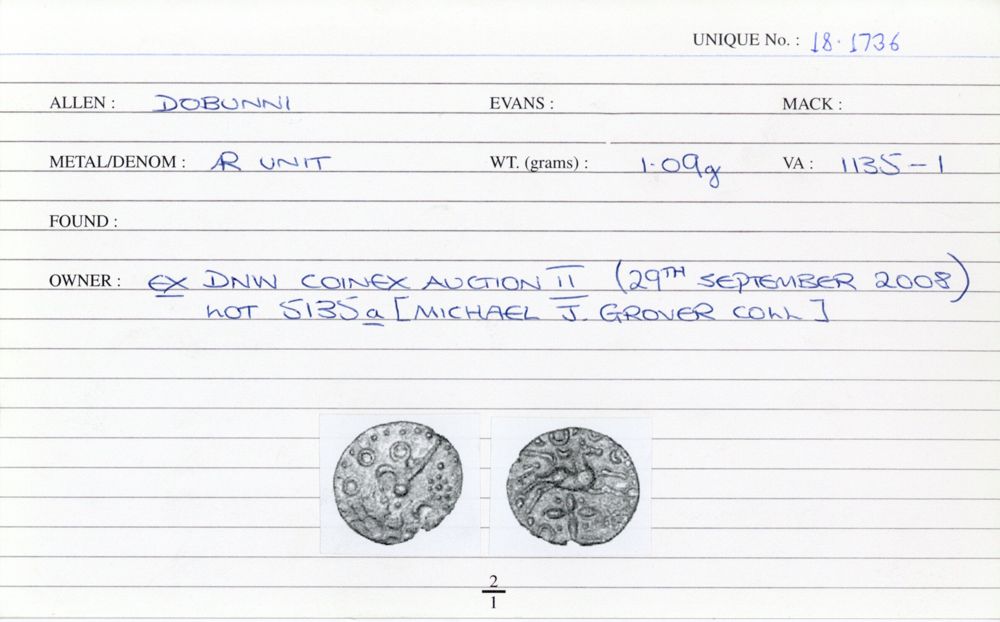 UNIQUE No. : 18.1736
ALLEN : DOBUNNI EVANS : MACK :
METAL/DENOM : AR UNIT WT. (grams) : 1.09g VA : 1135-1
FOUND :
OWNER : EX DNW COINEX AUCTION II (29TH SEPTEMBER 2008)
LOT 5135a [MICHAEL J. GROVER COLL]
2
1